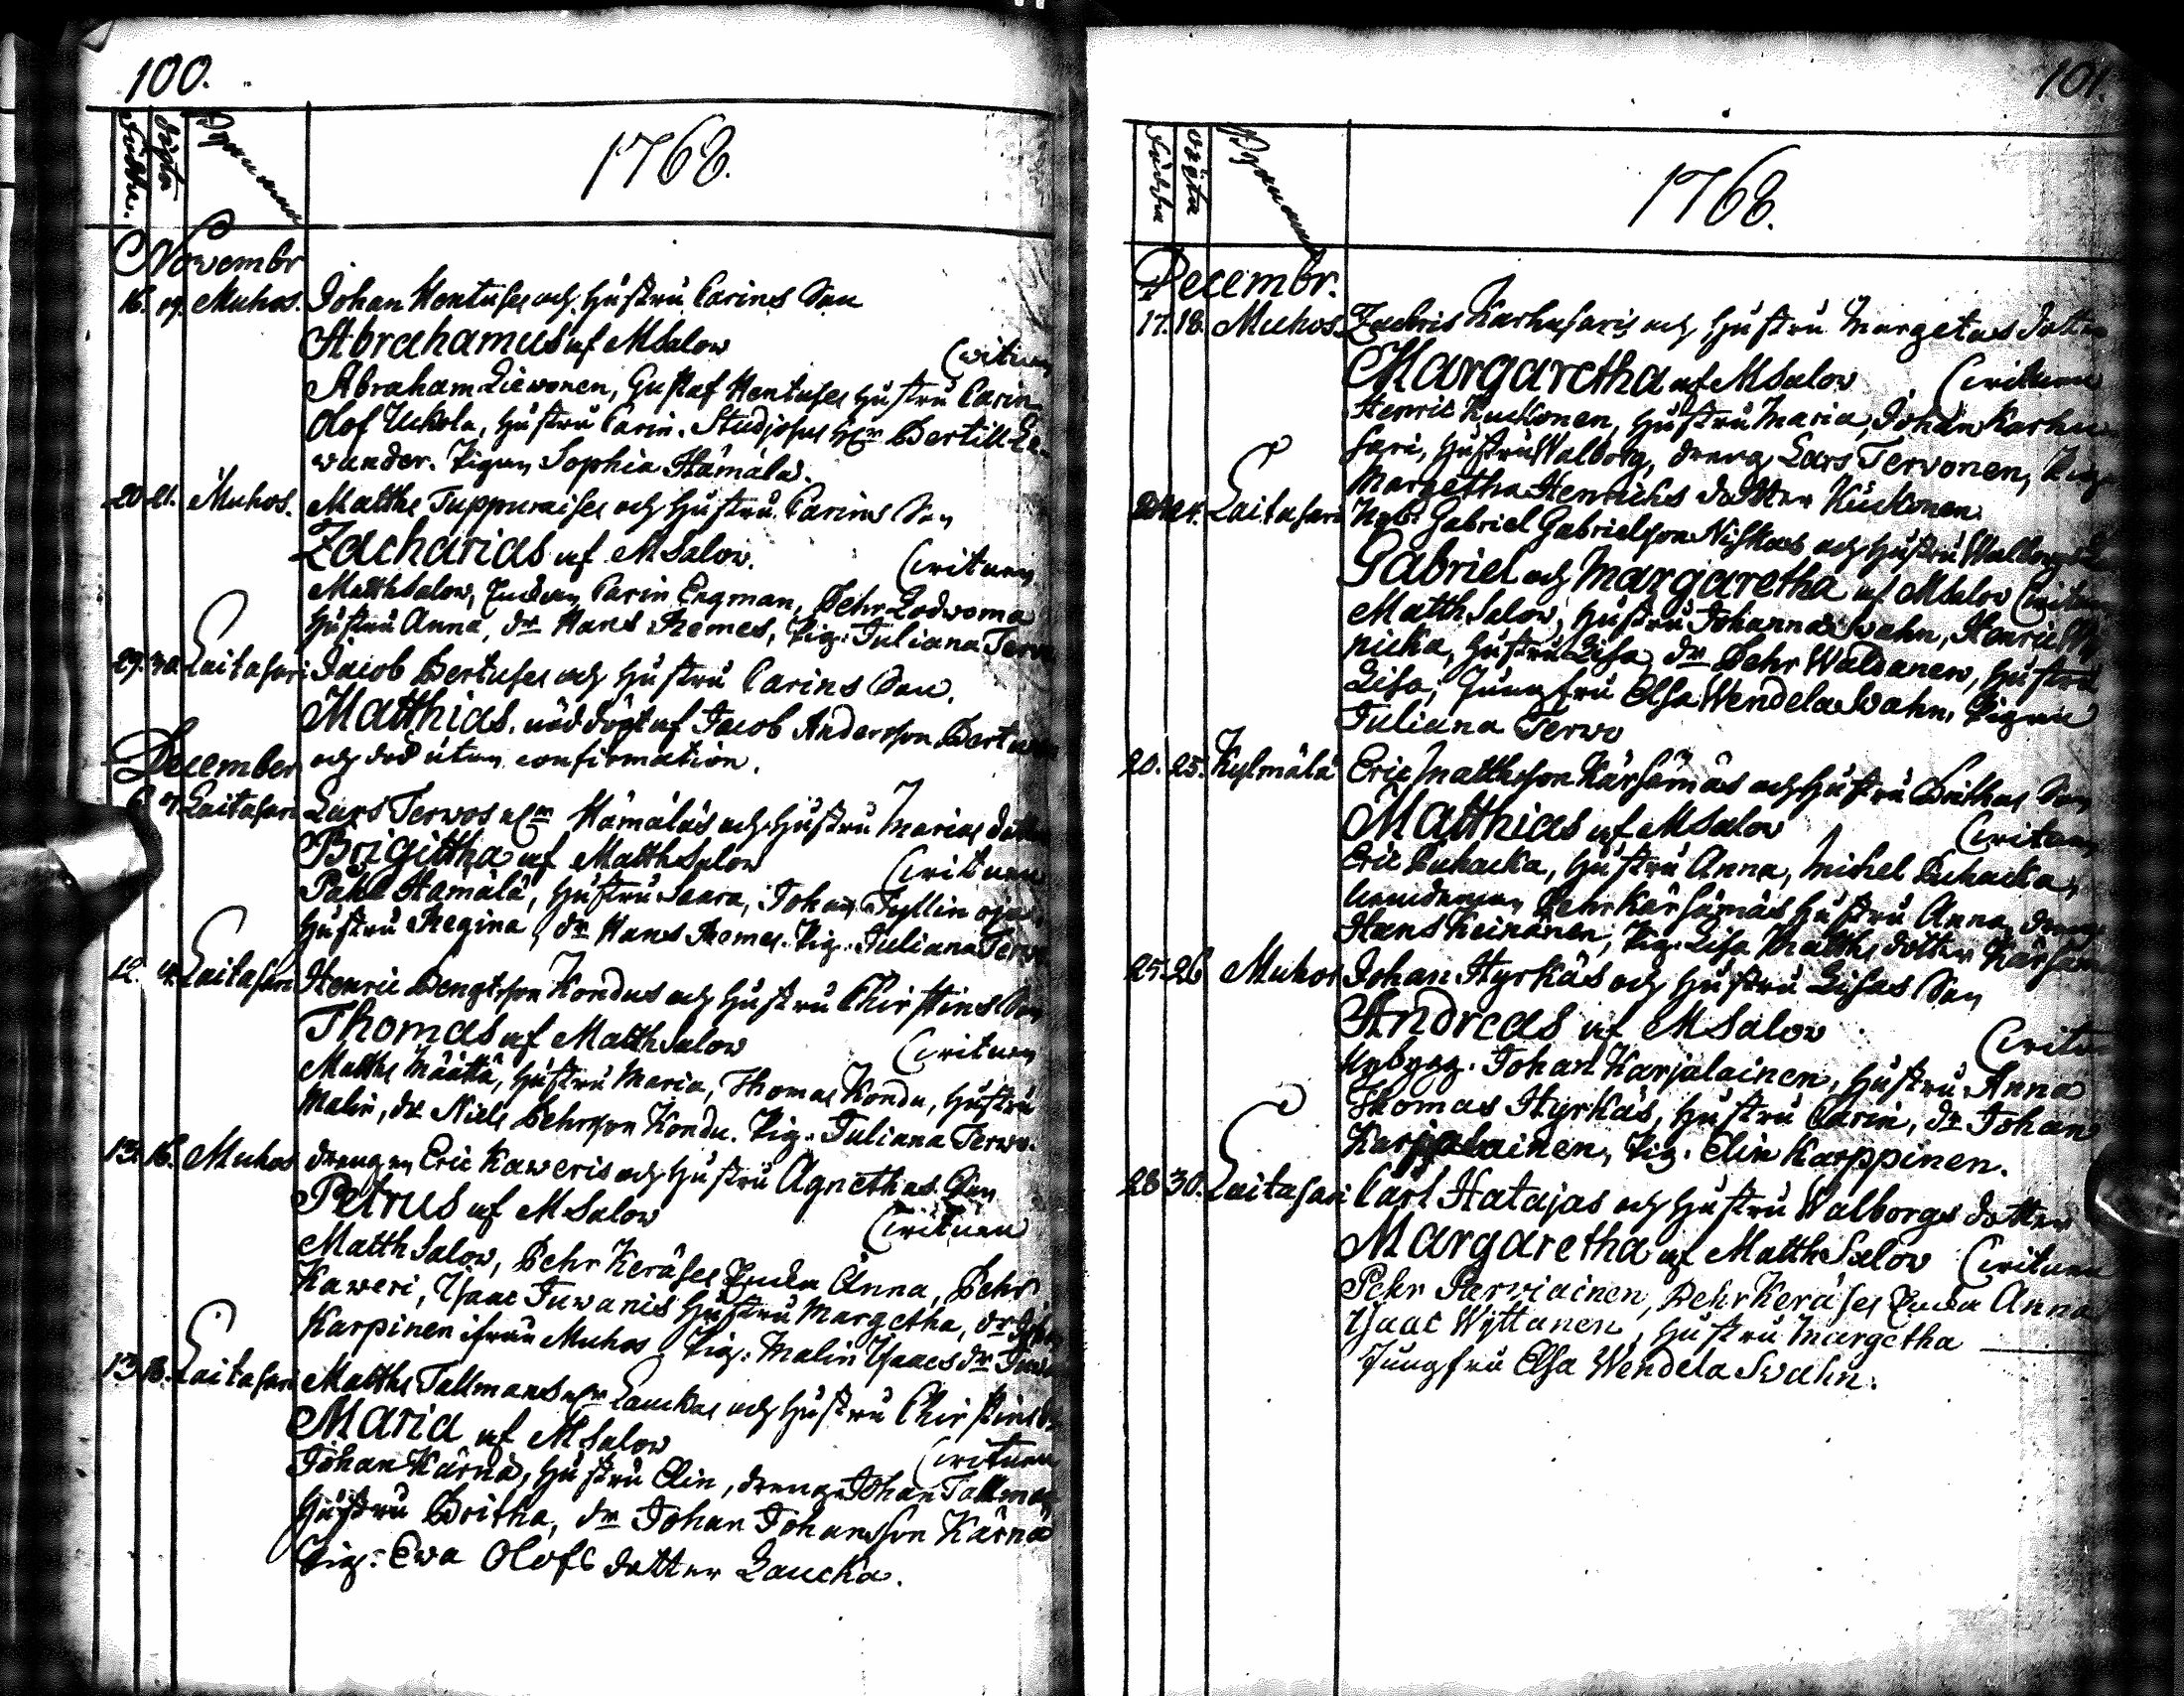 100.
födde. döpte Byarnas
1768.
Novembr
16. 17. Muhos. Johan Hentuses och hustru Carins Son
Abrahamus af MSalow Critnen
Abraham Liewonen, Gustaf Hentuses hustru Carin
Olof Uckola, hustru Carin. Studiosus Hr Bertill
wander. Pigan Sophia Hämälä.
20. 21. Muhos. Matths Tuppuraises och hustru Carins Son
Zacharias af MSalow. Critnen
Matth Salow, Enkan Carin Engman, Pehr Lodwoma
hustru Anna, dr Hans Remes, Pig. Juliana Terwo
29. 30. Laitasari Jacob Bertuses och hustru Carins Son.
Matthias, nöddögt af Jacob Andersson Bertunen
och död utan confirmation.
December
6. 7. Laitasari Lars Terwos Hämäläs och hustru Marias dotter
Brigittha af Matth Salow Critnen
Påhl Hämälä, hustru Saara, Johan Tyllinoja
hustru Regina, dr Hans Remes. Pig. Juliana Terwo
12. Laitasari Henric Bengtsson Kondus och hustru Chirstins Son
Thomas af Matth Salow Critnen
Matths Määttä, hustru Maria, Thomas Kondu, hustru
Malin, dr Niels Pehrsson Kondu. Pig. Juliana Terwo.
13. 18. Muhos drengen Eric Kaweris och hustru Agnethas Son
Petrus af MSalow Critnen
Matth Salow, Pehr Keräses Enka Anna, Pehr
Kaweri, Isaac Juwanis hustru Margetha, dr
Karpinen ifrån Muhos, Pig. Malin Isaacs dr
13. 18. Laitasari Matths Tallmans Lauckas och hustru Chirstins
Maria af MSalow Critnen
Johan Kärnä, hustru Elin, dreng Johan Tallman
hustru Britha, dr Johan Johansson Kärnä
Pig. Eva Olofs dotter Laucka.
101.
födde döpte Byarnas
1768.
Decembr.
17. 18. Muhos. Zachris Karhusaris och hustru Margetas dotter
Margaretha af MSalow Critnen
Henric Kuckonen, hustru Maria, Johan Karhu
sari, hustru Walborg, dreng Lars Tervonen, Pig
Margetha Henrichs dotter Kuckonen.
24. Laitasari Nyb. Gabriel Gabrielsson Niskas och hustru Walborgs
Gabriel och Margaretha af MSalow Critnen
Matth Salow, hustru Johanna Swahn, Henric
nicka, hustru Lisa, dr Pehr Waldanen, hustru
Lisa, Jungfru Elsa Wendela Swahn, Pigan
Juliana Terwo
20. 25. Kylmälä Eric Matthsson Kärsämäs och hustru Brithas Son
Matthias af MSalow Critnen
Eric Puhacka, hustru Anna, Michel Puhacka,
Nemdeman Pehr Kärsämäs hustru Anna, dreng
Hans Keinänen, Pig. Lisa Matths dotter Kärsämä
25. 26 Muhos Johan Hyrkäs och hustru Lisas Son
Andreas af MSalow Critnen
Nybygg. Johan Karjalainen, hustru Anna
Thomas Hyrkäs, hustru Carin, dr Johan
Karjalainen, Pig. Elin Karppinen.
28 30. Laitasari Carl Hatajas och hustru Walborgs dotter
Margaretha af Matth Salow Critnen
Pehr Parviainen, Pehr Keräses Enka Anna
Isaac Wyttanen, hustru Margetha
Jungfru Elsa Wendela Swahn.